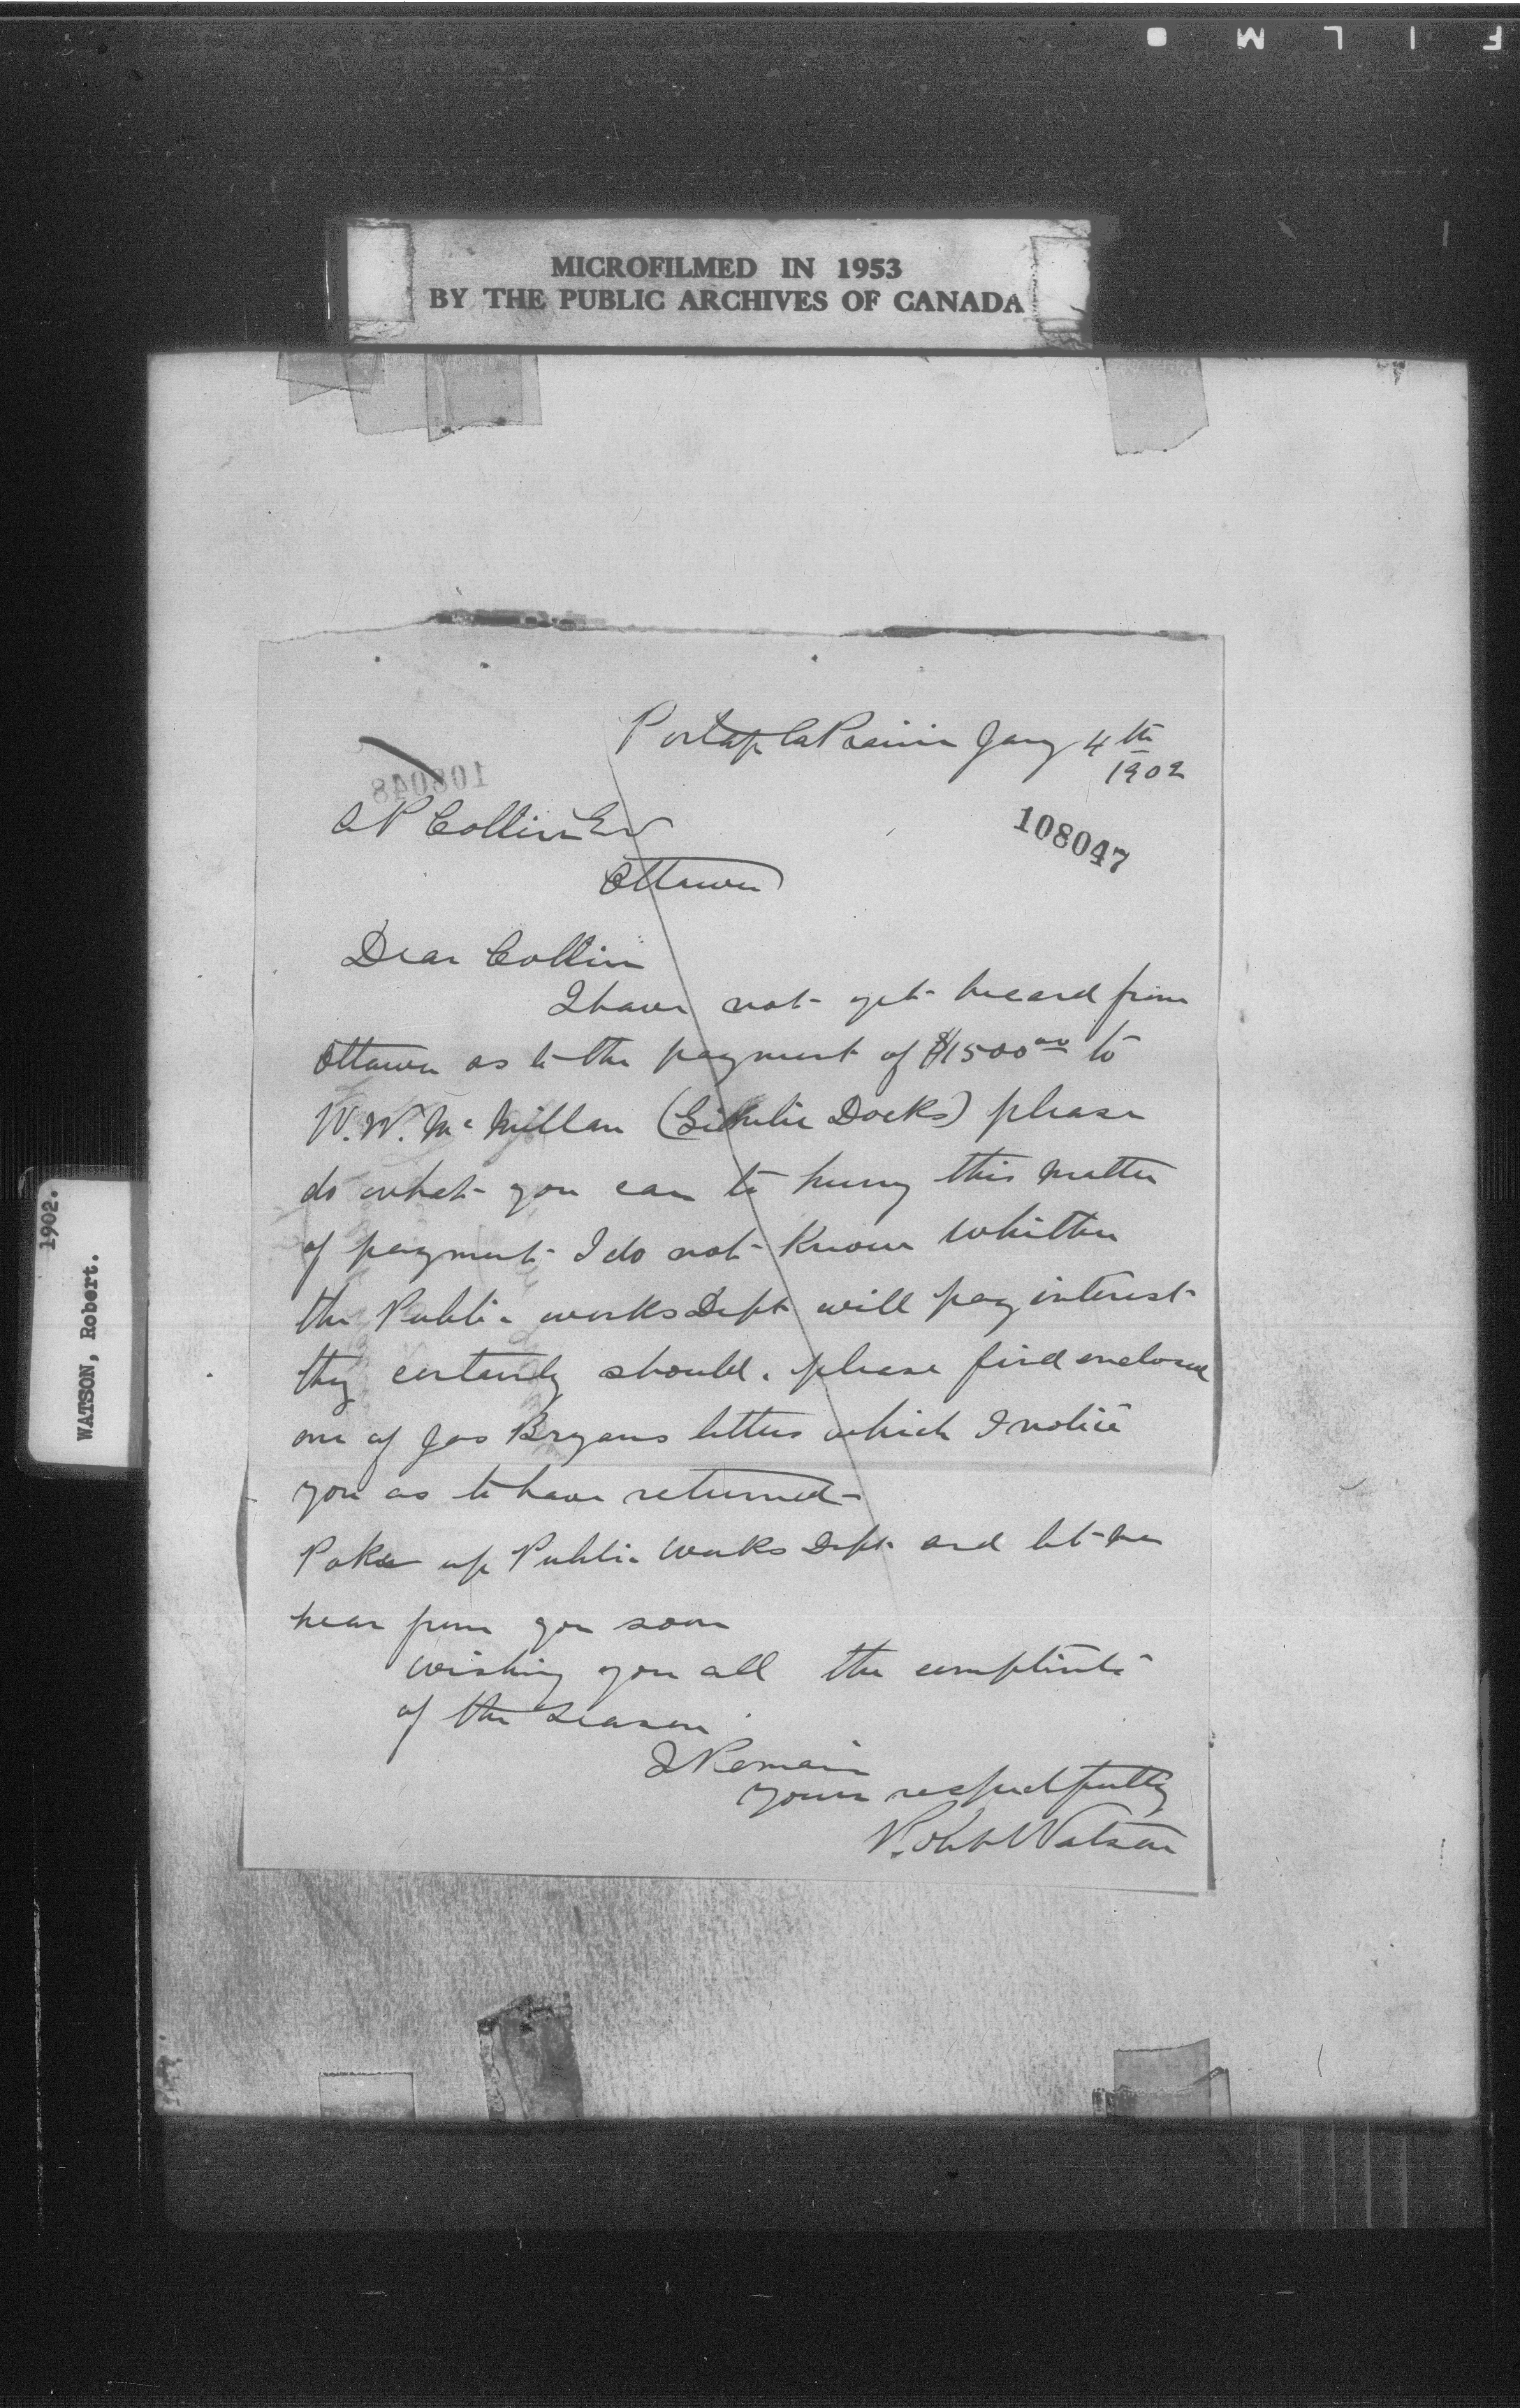 FILM
MICROFILMED IN 1953
BY THE PUBLIC ARCHIVES OF CANADA
1902.
WATSON, Robert.
Portage la Prairie Jany 4th
1902
108048
108047
A P Collin Esq
Ottawa
Dear Collin
I have not yet heard from
Ottawa as to the payment of $1500.00 to
W. W. McMillan (Gimlie Docks) please
do what you can to hurry this matter
of payment I do not know whither
the Public works Dept will pay interest
they certainly should. please find enclosed
one of Jas Bryans letters which I notice
you as to have returned
Poke up Public Works Dept and let me
hear from you soon
wishing you all the complints
of the season
I Remain
yours respectfully
Robt Watson